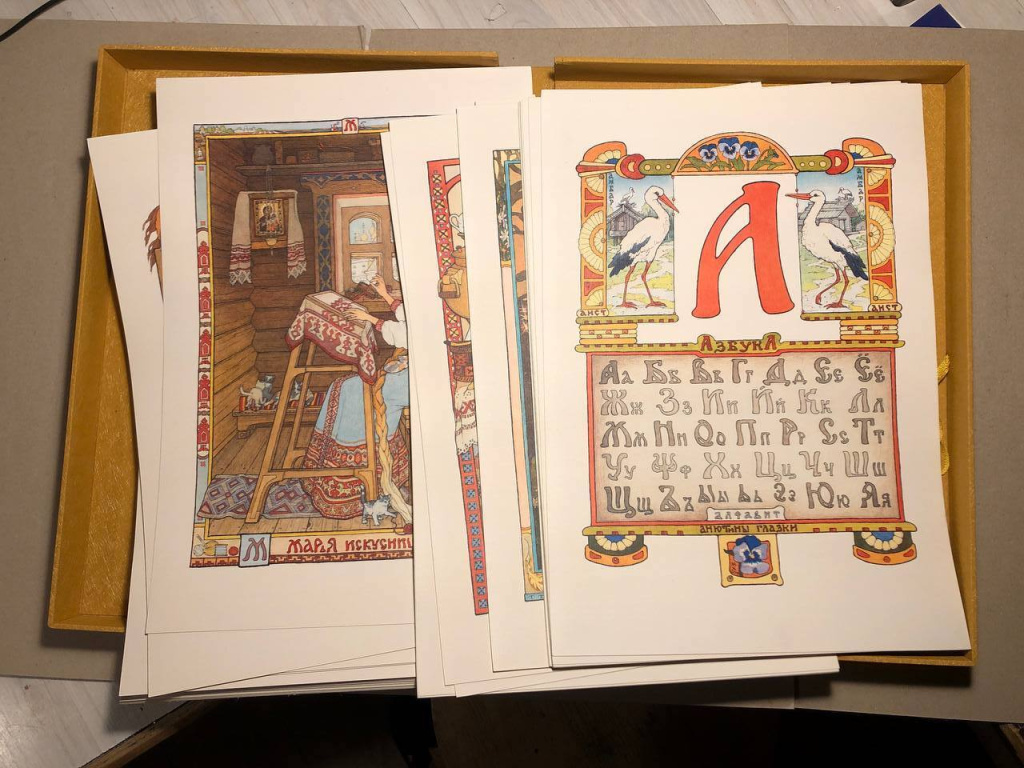 М
М МАРЬЯ ИСКУСНИЦ
А
АМБАР
АМБАР
АИСТ
АИСТ
АЗБУКА
Аа Бб Вв Гг Дд Ее Ёё
Жж Зз Ии Йй Кк Лл
Мм Нн Оо Пп Рр Сс Тт
Уу Фф Хх Цц Чч Шш
Щщ Ъъ Ыы Ьь Ээ Юю Яя
АЛФАВИТ
АНЮТИНЫ ГЛАЗКИ